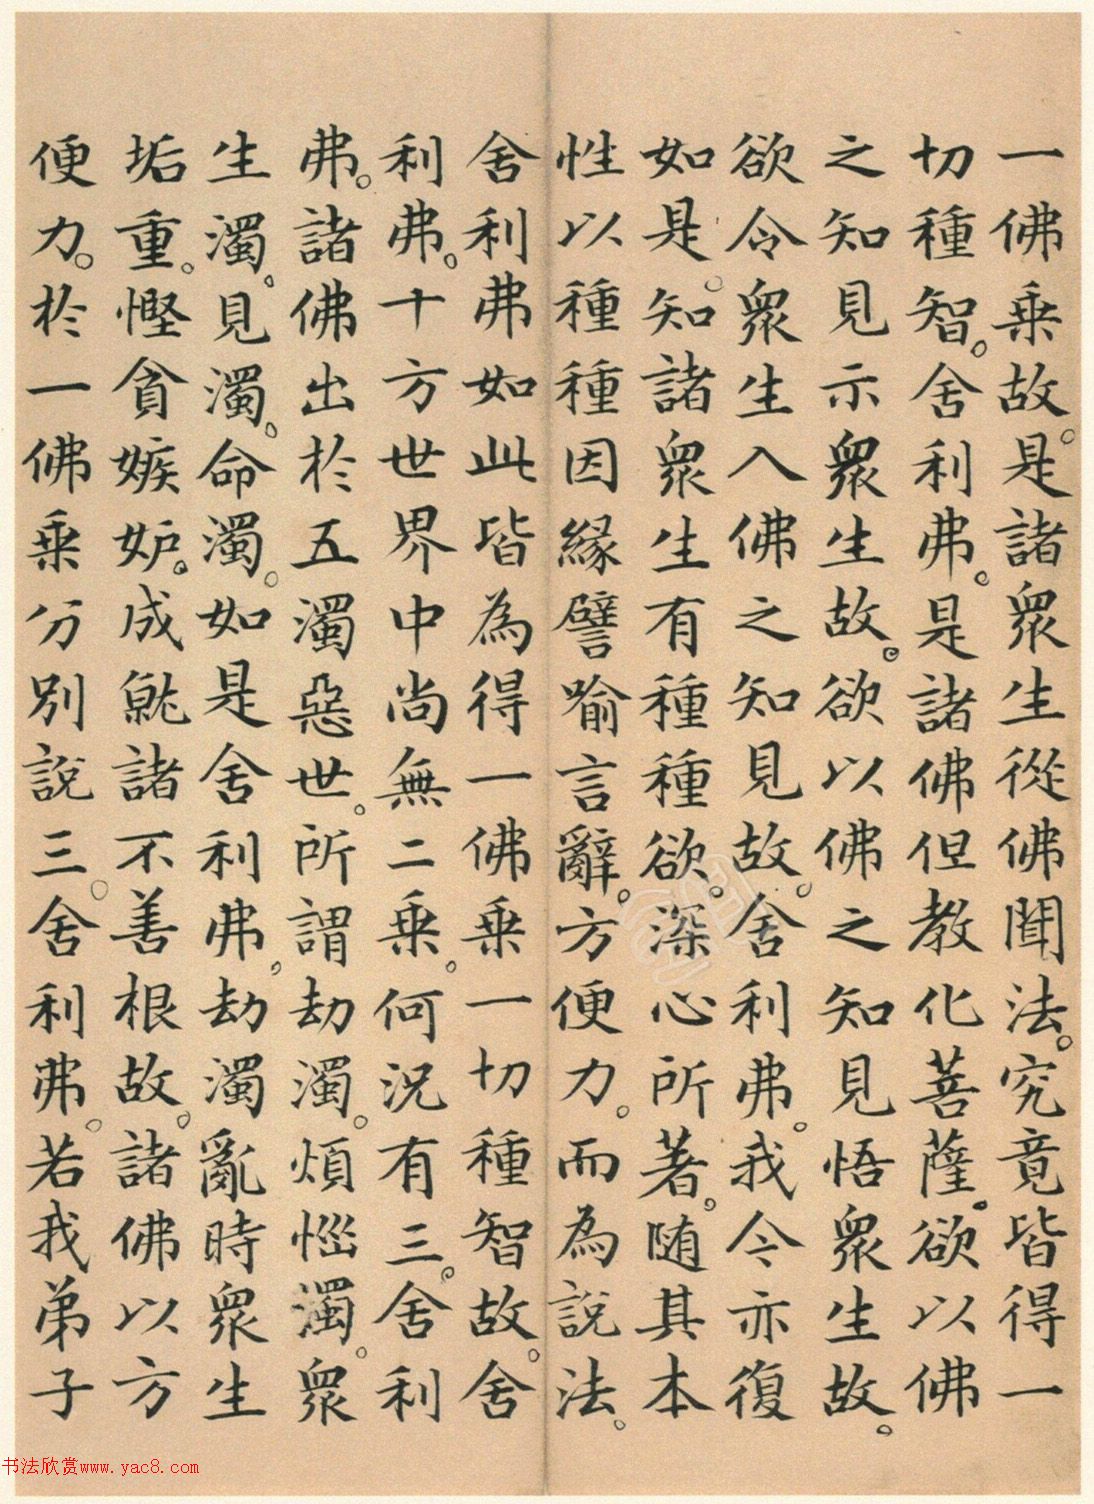 一佛乘故。是諸衆生從佛聞法。究竟皆得一
切種智。舍利弗。是諸佛但教化菩薩。欲以佛
之知見示衆生故。欲以佛之知見悟衆生故。
欲令衆生入佛之知見故。舍利弗。我今亦復
如是。知諸衆生有種種欲。深心所著。随其本
性以種種因緣譬喻言辭。方便力。而為說法。
舍利弗如此皆為得一佛乘一切種智故。舍
利弗。十方世界中尚無二乘。何況有三。舍利
弗。諸佛出於五濁惡世。所謂劫濁。煩惱濁。衆
生濁。見濁。命濁。如是舍利弗。劫濁亂時衆生
垢重。慳貪嫉妒。成就諸不善根故。諸佛以方
便力。於一佛乘分別說三。舍利弗。若我弟子
书法欣赏www.yac8.com